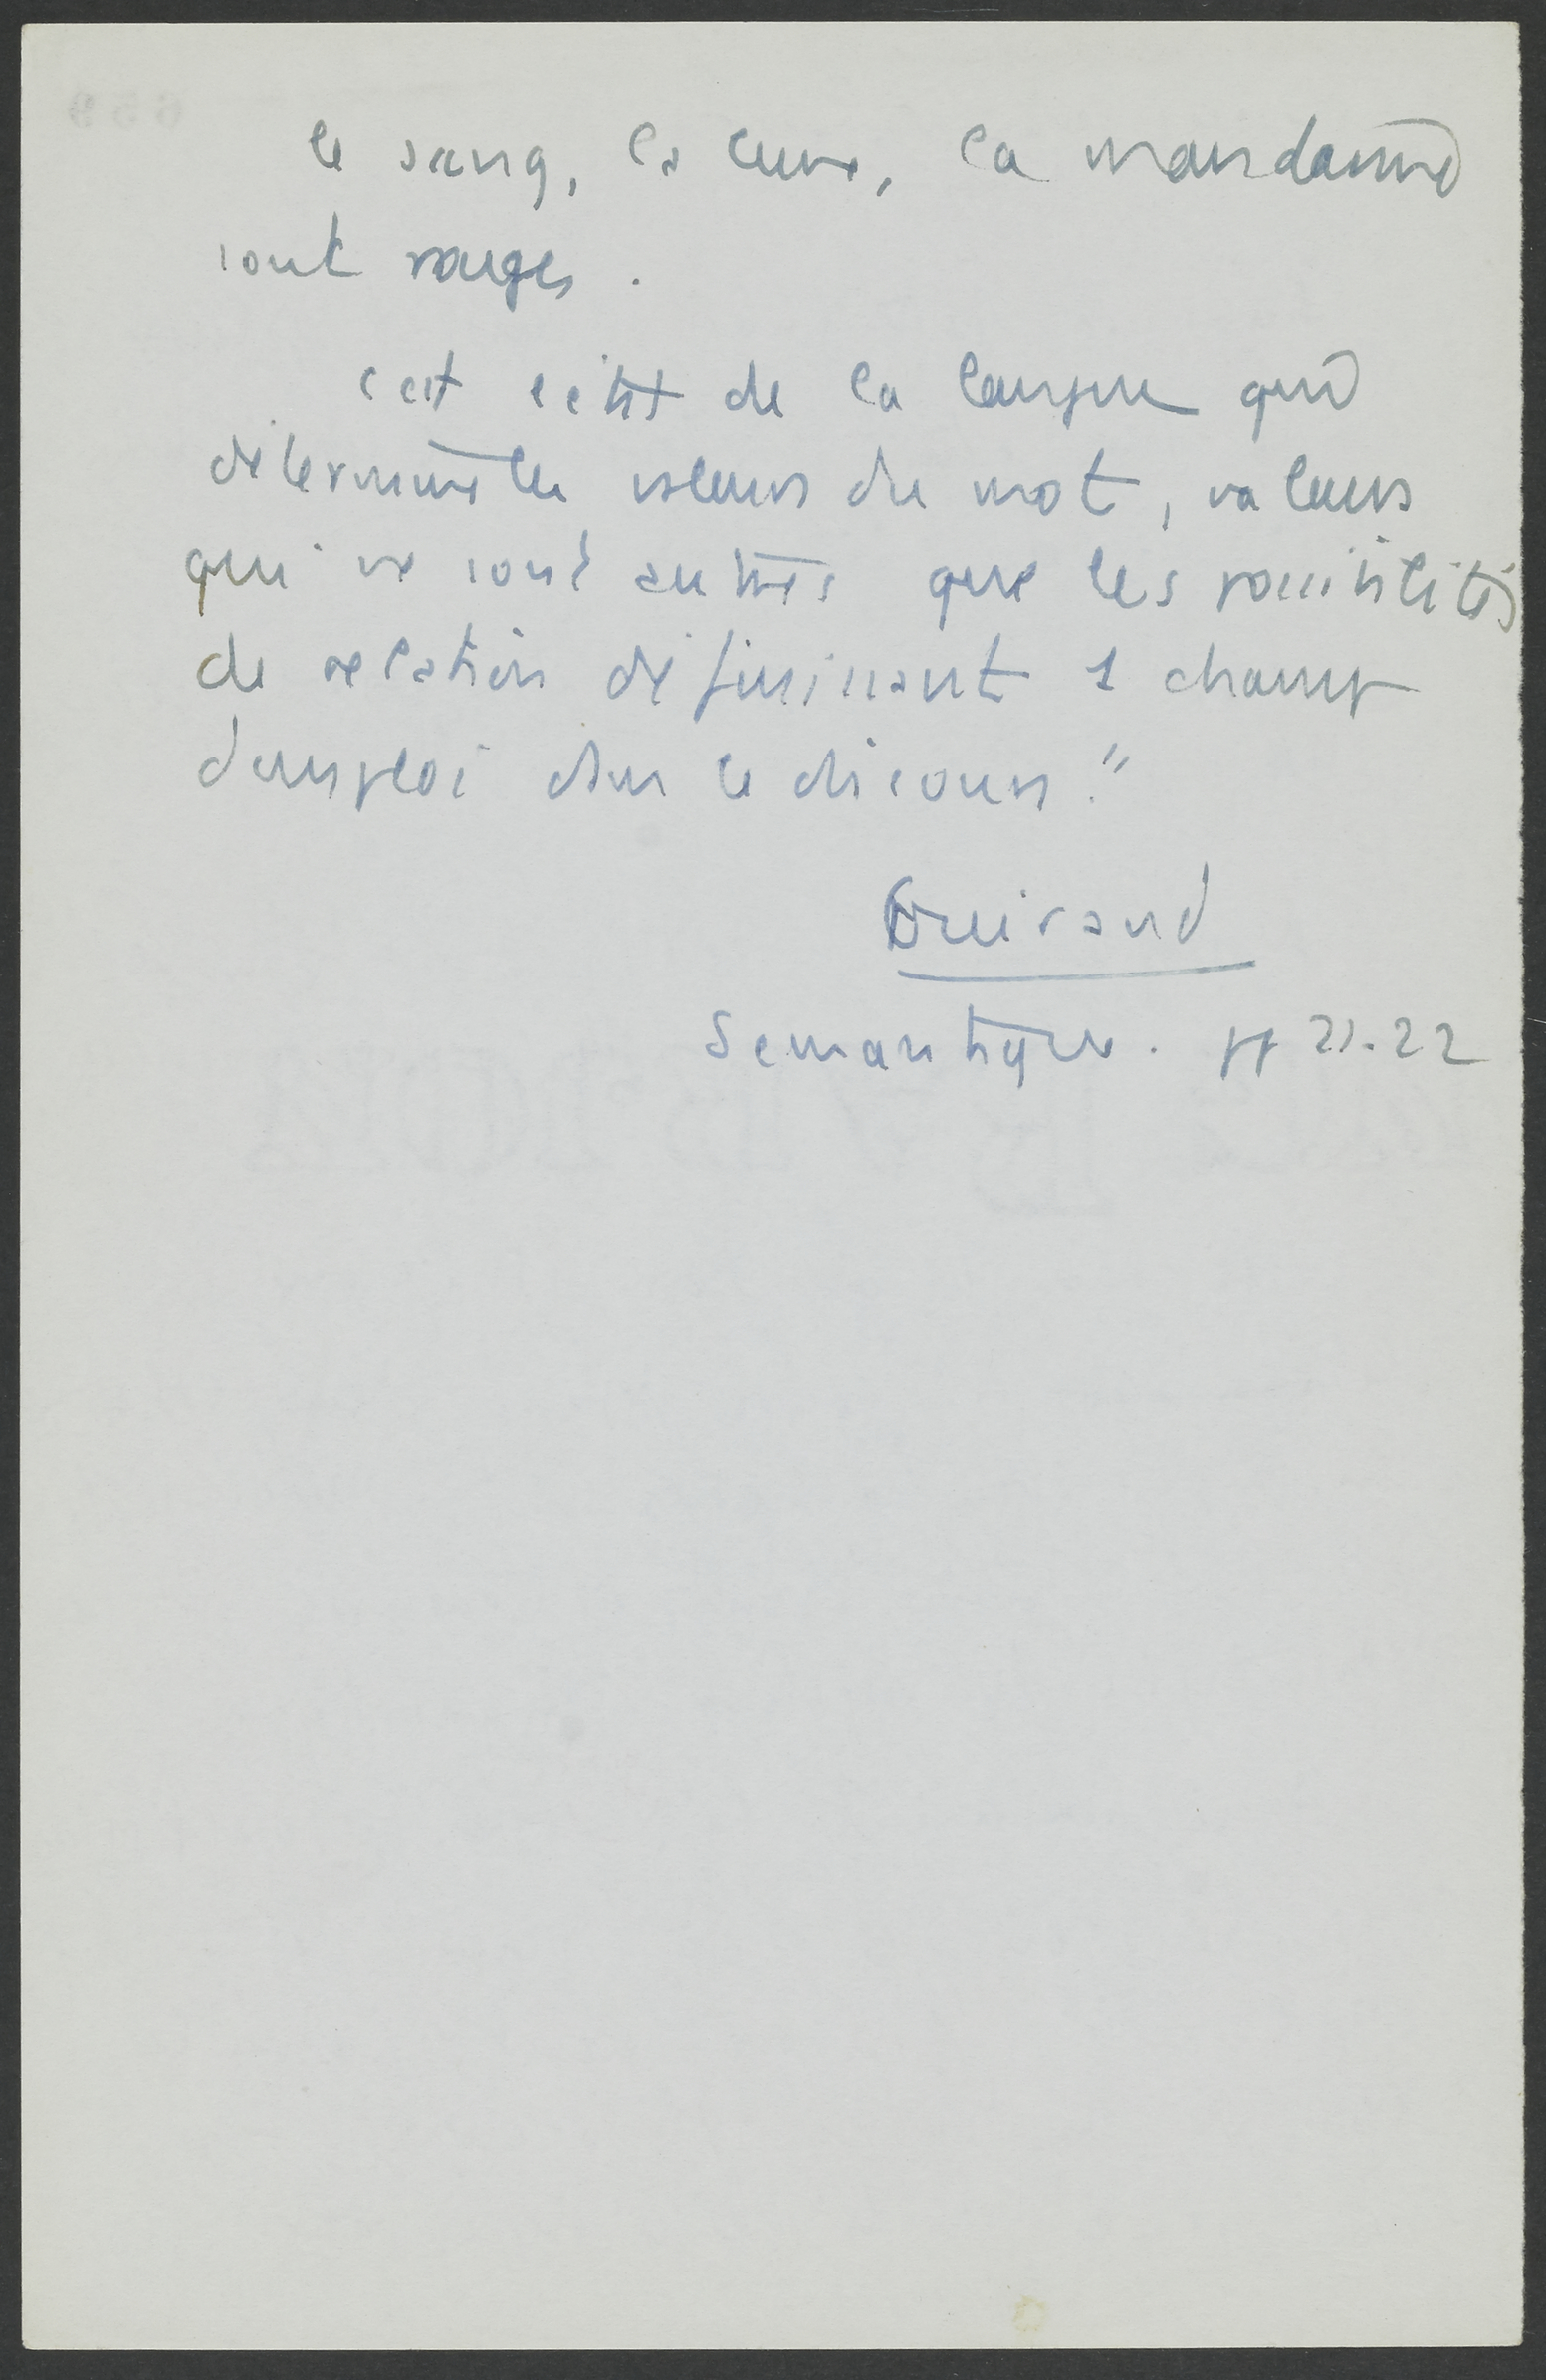 le sang, la lune, la mandarine
sont rouges.
c'est l'état de la langue qui
détermine les valeurs du mot, valeurs
qui ne sont autres que les possibilités
de relation définissant 1 champ
d'emploi dans le discours."
Guiraud
Semantique. pp 21.22